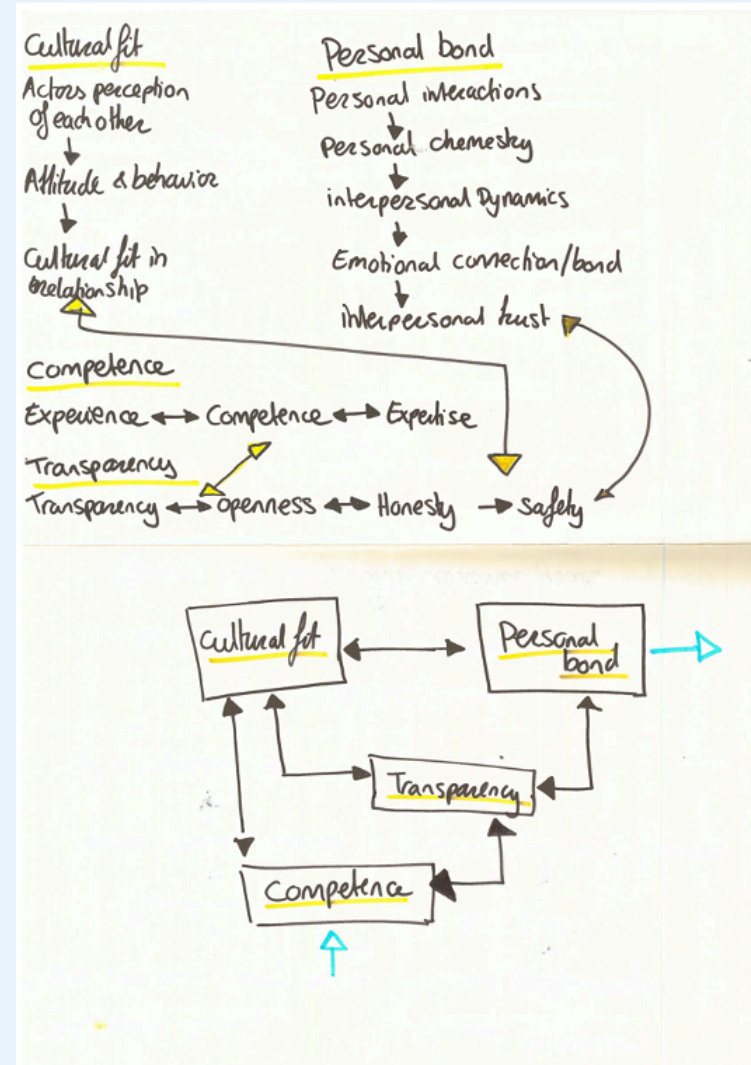 Cultural fit
Actors perception
of each other
Attitude & behavior
Cultural fit in
relationship
Personal bond
Personal interactions
Personal chemestry
interpersonal Dynamics
Emotional connection/bond
interpersonal trust
Competence
Experience Competence Expertise
Transparency
Transparency openness Honesty Safety
Cultural fit
Personal
bond
Transparency
Competence